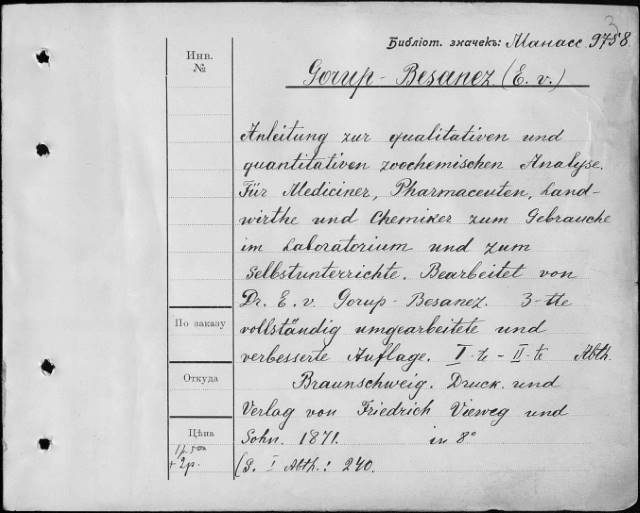 3
Библіот. значекъ: Манасс. 9758.
Инв. №
Gorup-Besanez (E. v.)
Anleitung zur qualitativen und
quantitativen zoochemischen Analyse.
Für Mediciner, Pharmaceuten, Land-
wirthe und Chemiker zum Gebrauche
im Laboratorium und zum
Selbstunterrichte. Bearbeitet von
Dr. E. v. Gorup-Besanez. 3-tte
vollständig umgearbeitete und
verbesserte Auflage. I-te - II-te Abth.
Braunschweig. Druck und
Verlag von Friedrich Vieweg und
Sohn. 1871. in 8°
(S. I Abth.: 240.
По заказу
Откуда
Цѣна
+ 2р.